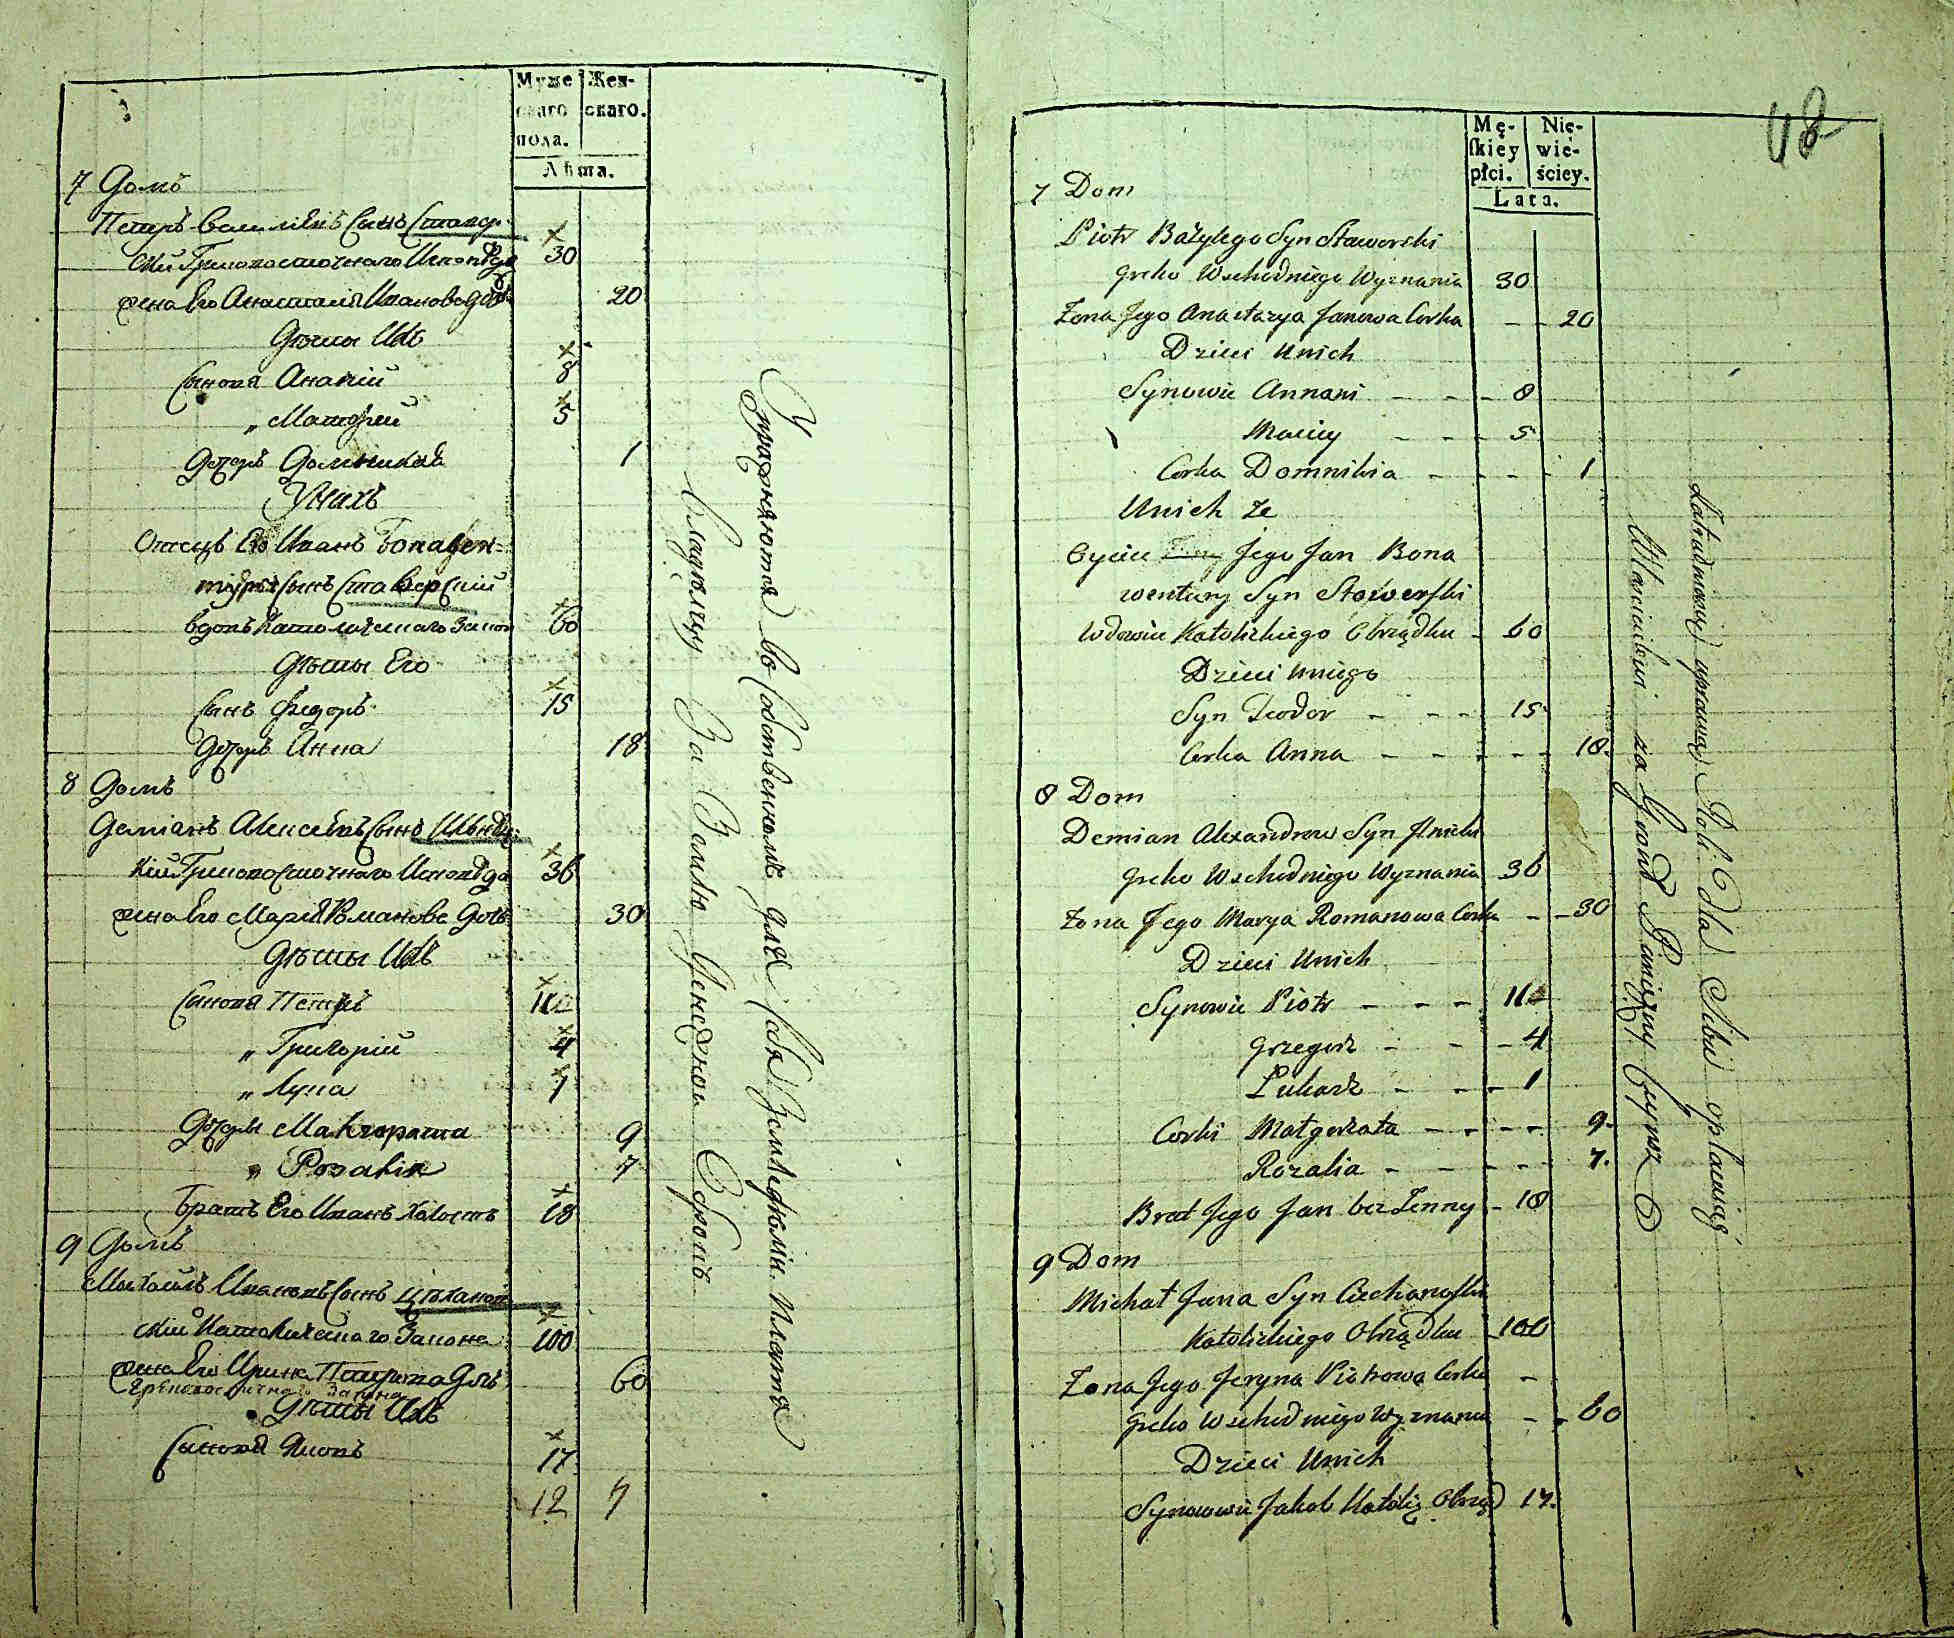 Муже
скаго
пола.
Жен-
скаго.
Лѣта.
7 Домъ
Петръ Василіевъ Сынъ Ставер-
скій Грековосточнаго Исповѣда 30
жена Его Анастасія Иванова дочь 20
Дѣти Ихъ
Сыновя Ананій 8
„ Матфей 5
Дочерь Домникія 1
У Нихъ
Отецъ Его Иванъ Бонавен-
туры Сынъ Ставерскій
вдовъ Католическаго Закон 60
Дѣти Его
Сынъ Федоръ 15
Дочерь Анна 18
8 Домъ
Деміанъ Алексѣевъ Сынъ
кій Грековосточнаго Исповѣда 36
жена Его Марія Романова Дочь 30
Дѣти Ихъ
Сыновя Петръ
„ Григорій 4
„ Лука 1
Дочеры Малгората 9
„ Розалія 7
Братъ Его Иванъ Холостъ 18
9 Домъ
Михаилъ Ивановъ Сынъ Цѣханов
скій Католическаго Закона 100
жена Его Ирина Петрова Дочь 60
Грековосточнаго Закона
Дѣти Ихъ
Сыновя Яковъ 17
12 7
Упражняются во Собственномъ для себя Земледѣліи. Платя
Владѣльцу За Землю Денежной Оброкъ
48
Mę-
skiey
płci.
Nie-
wie-
ściey.
Lata.
7 Dom
Piotr Bazylego Syn Stawerski
Greko Wschodniego Wyznania 30
Żona Jego Anastazya Janowa Corka - - 20
Dzieci Unich
Synowie Annani - - - 8
Maciey - - - 5
Corka Domnikia - - - - 1
Unich Że
Oyciec Jego Jan Bona
wentury Syn Stawerski
Wdowiec Katolickiego Obrządku - 60
Dzieci Uniego
Syn Teodor - - - 15
Corka Anna - - - - - 18.
8 Dom
Demian Alexandrow Syn
Greko Wschodniego Wyznania 36
Żona Jego Marya Romanowa Corka - - 30
Dzieci Unich
Synowie Piotr - - -
Grzegorz - - - 4
Łukasz - - - 1
Corki Małgorzata - - - - 9.
Rozalia - - - - - 7.
Brat Jego Jan bez Żenny - 18
9 Dom
Michał Jana Syn Ciechanoski
Katolickiego Obrządku 100
Żona Jego Jeryna Piotrowa Corka -
Greko Wschodniego Wyznania - - 60
Dzieci Unich
Synowie Jakob Katolic Obrząd 17.
Zatrudniaią uprawą Roli dla Siebie opłacaiąc
Właścicielowi za Grunt Pieniężny Czynsz